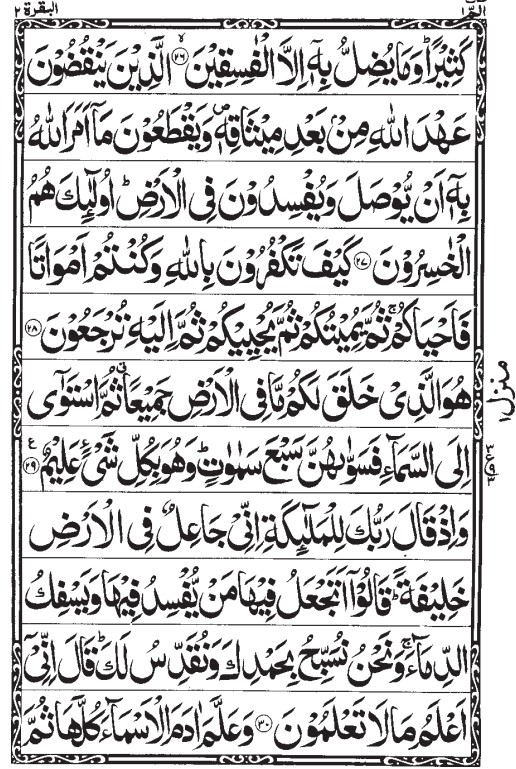 البقرة ٢
الٓمّٓ ١
كَثِيْرًاؕ وَمَا يُضِلُّ بِهٖۤ اِلَّا الْفٰسِقِيْنَۙ ﴿۲۶﴾ الَّذِيْنَ يَنْقُضُوْنَ
عَهْدَ اللّٰهِ مِنْۢ بَعْدِ مِيْثَاقِهٖ ۪ وَيَقْطَعُوْنَ مَاۤ اَمَرَ اللّٰهُ
بِهٖۤ اَنْ يُّوْصَلَ وَيُفْسِدُوْنَ فِى الْاَرْضِؕ اُولٰٓئِكَ هُمُ
الْخٰسِرُوْنَ ﴿۲۷﴾ كَيْفَ تَكْفُرُوْنَ بِاللّٰهِ وَكُنْتُمْ اَمْوَاتًا
فَاَحْيَاكُمْۚ ثُمَّ يُمِيْتُكُمْ ثُمَّ يُحْيِيْكُمْ ثُمَّ اِلَيْهِ تُرْجَعُوْنَ ﴿۲۸﴾
هُوَ الَّذِىْ خَلَقَ لَكُمْ مَّا فِى الْاَرْضِ جَمِيْعًاۗ ثُمَّ اسْتَوٰٓى
اِلَى السَّمَآءِ فَسَوّٰٮهُنَّ سَبْعَ سَمٰوٰتٍؕ وَهُوَ بِكُلِّ شَىْءٍ عَلِيْمٌ ﴿۲۹﴾ ع
وَاِذْ قَالَ رَبُّكَ لِلْمَلٰٓئِكَةِ اِنِّىْ جَاعِلٌ فِى الْاَرْضِ
خَلِيْفَةًؕ قَالُوْۤا اَتَجْعَلُ فِيْهَا مَنْ يُّفْسِدُ فِيْهَا وَيَسْفِكُ
الدِّمَآءَۚ وَنَحْنُ نُسَبِّحُ بِحَمْدِكَ وَنُقَدِّسُ لَكَؕ قَالَ اِنِّىْۤ
اَعْلَمُ مَا لَا تَعْلَمُوْنَ ﴿۳۰﴾ وَعَلَّمَ اٰدَمَ الْاَسْمَآءَ كُلَّهَا ثُمَّ
منزل ١